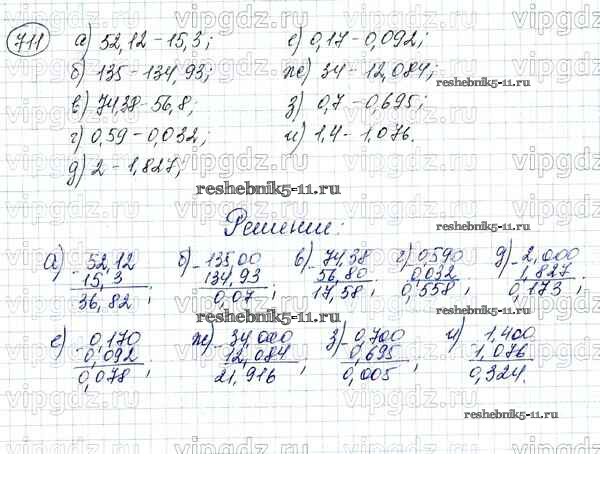 711
а) 52,12 - 15,3;
б) 135 - 134,93;
в) 74,38 - 56,8;
г) 0,59 - 0,032;
д) 2 - 1,827;
е) 0,17 - 0,092;
ж) 34 - 12,084;
з) 0,7 - 0,695;
и) 1,4 - 1,076.
reshebnik5-11.ru
reshebnik5-11.ru
Решение:
а) - 52,12
15,3
36,82;
б) - 135,00
134,93
0,07;
в) - 74,38
56,80
17,58;
г) - 0,590
0,032
0,558;
д) - 2,000
1,827
0,173;
reshebnik5-11.ru
е) - 0,170
0,092
0,078;
ж) - 34,000
12,084
21,916;
з) - 0,700
0,695
0,005;
и) - 1,400
1,076
0,324.
reshebnik5-11.ru
vipgdz.ru vipgdz.ru vipgdz.ru vipgdz.ru